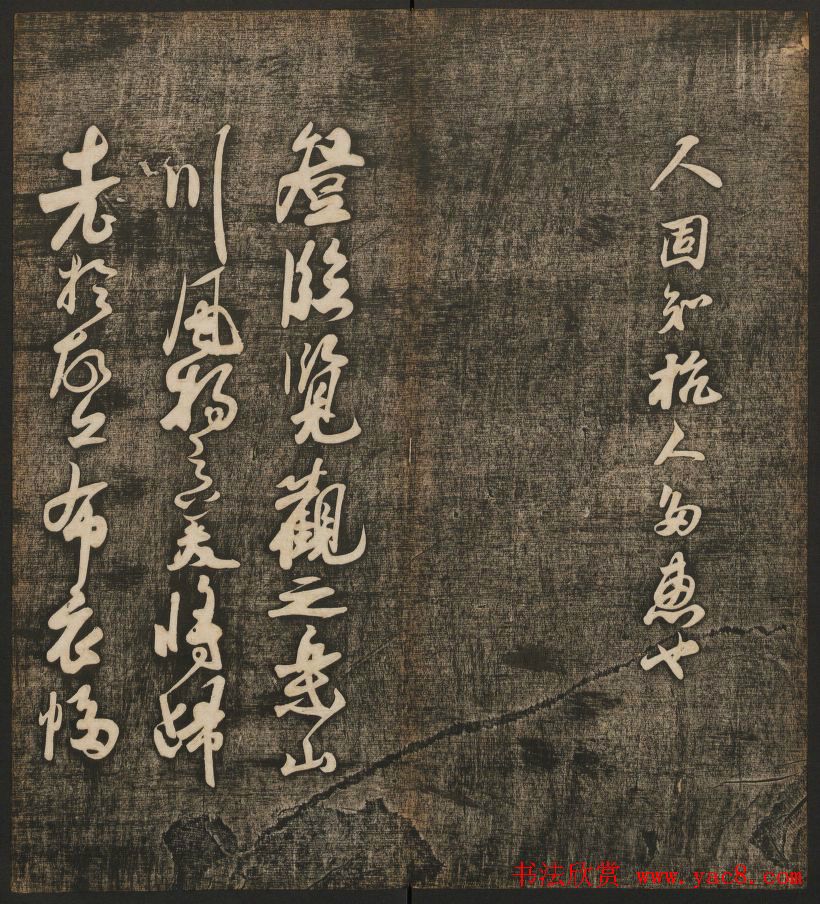 人固知杭人多惠也
登臨覽觀之樂山
川風物之美將歸
老於故丘布衣幅
书法欣赏 www.yac8.com